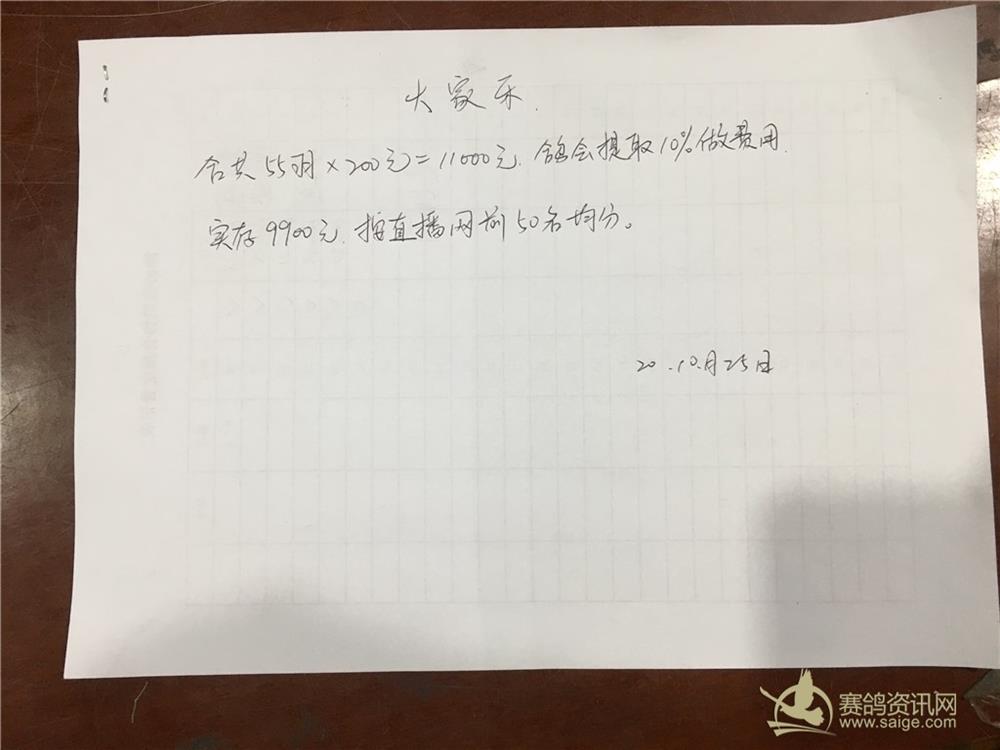 大家乐.
合共55羽×200元=11000元.鸽会提取10%做费用.
实存9900元.按直播网前50名均分。
20.10.月25日
赛鸽资讯网
www.saige.com